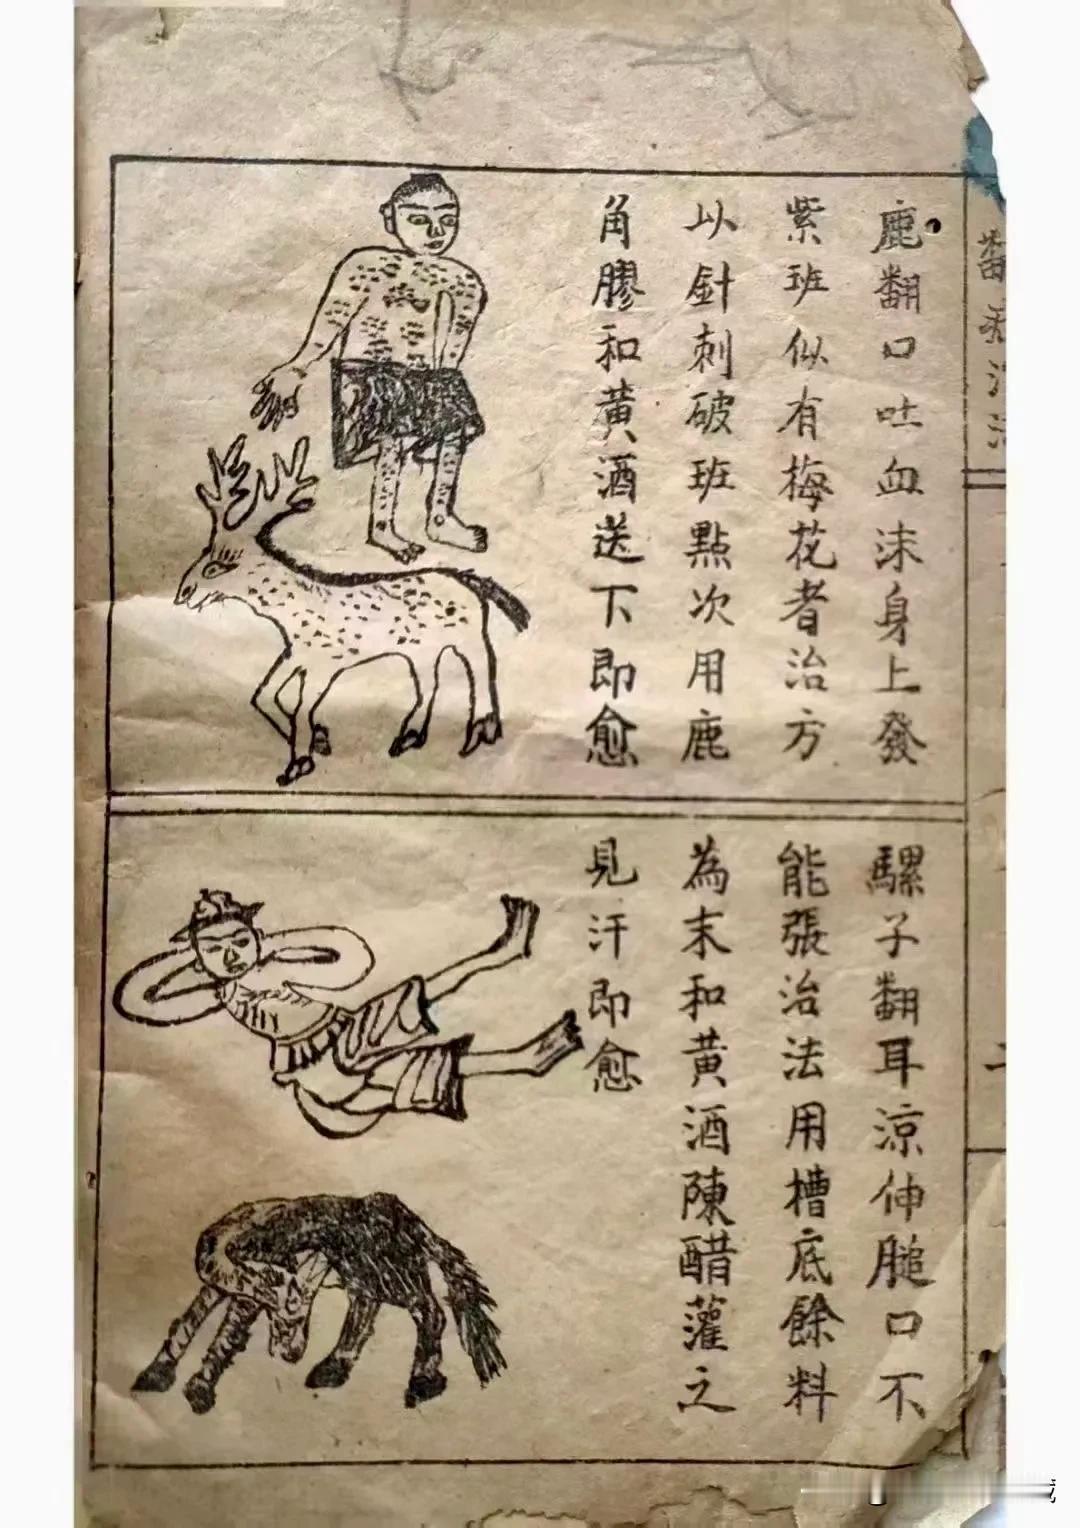 鹿翻口吐血沫身上發
紫班似有梅花者治方
以針刺破班點次用鹿
角膠和黃酒送下即愈
騾子翻耳涼伸腿口不
能張治法用槽底餘料
為末和黃酒陳醋灌之
見汗即愈